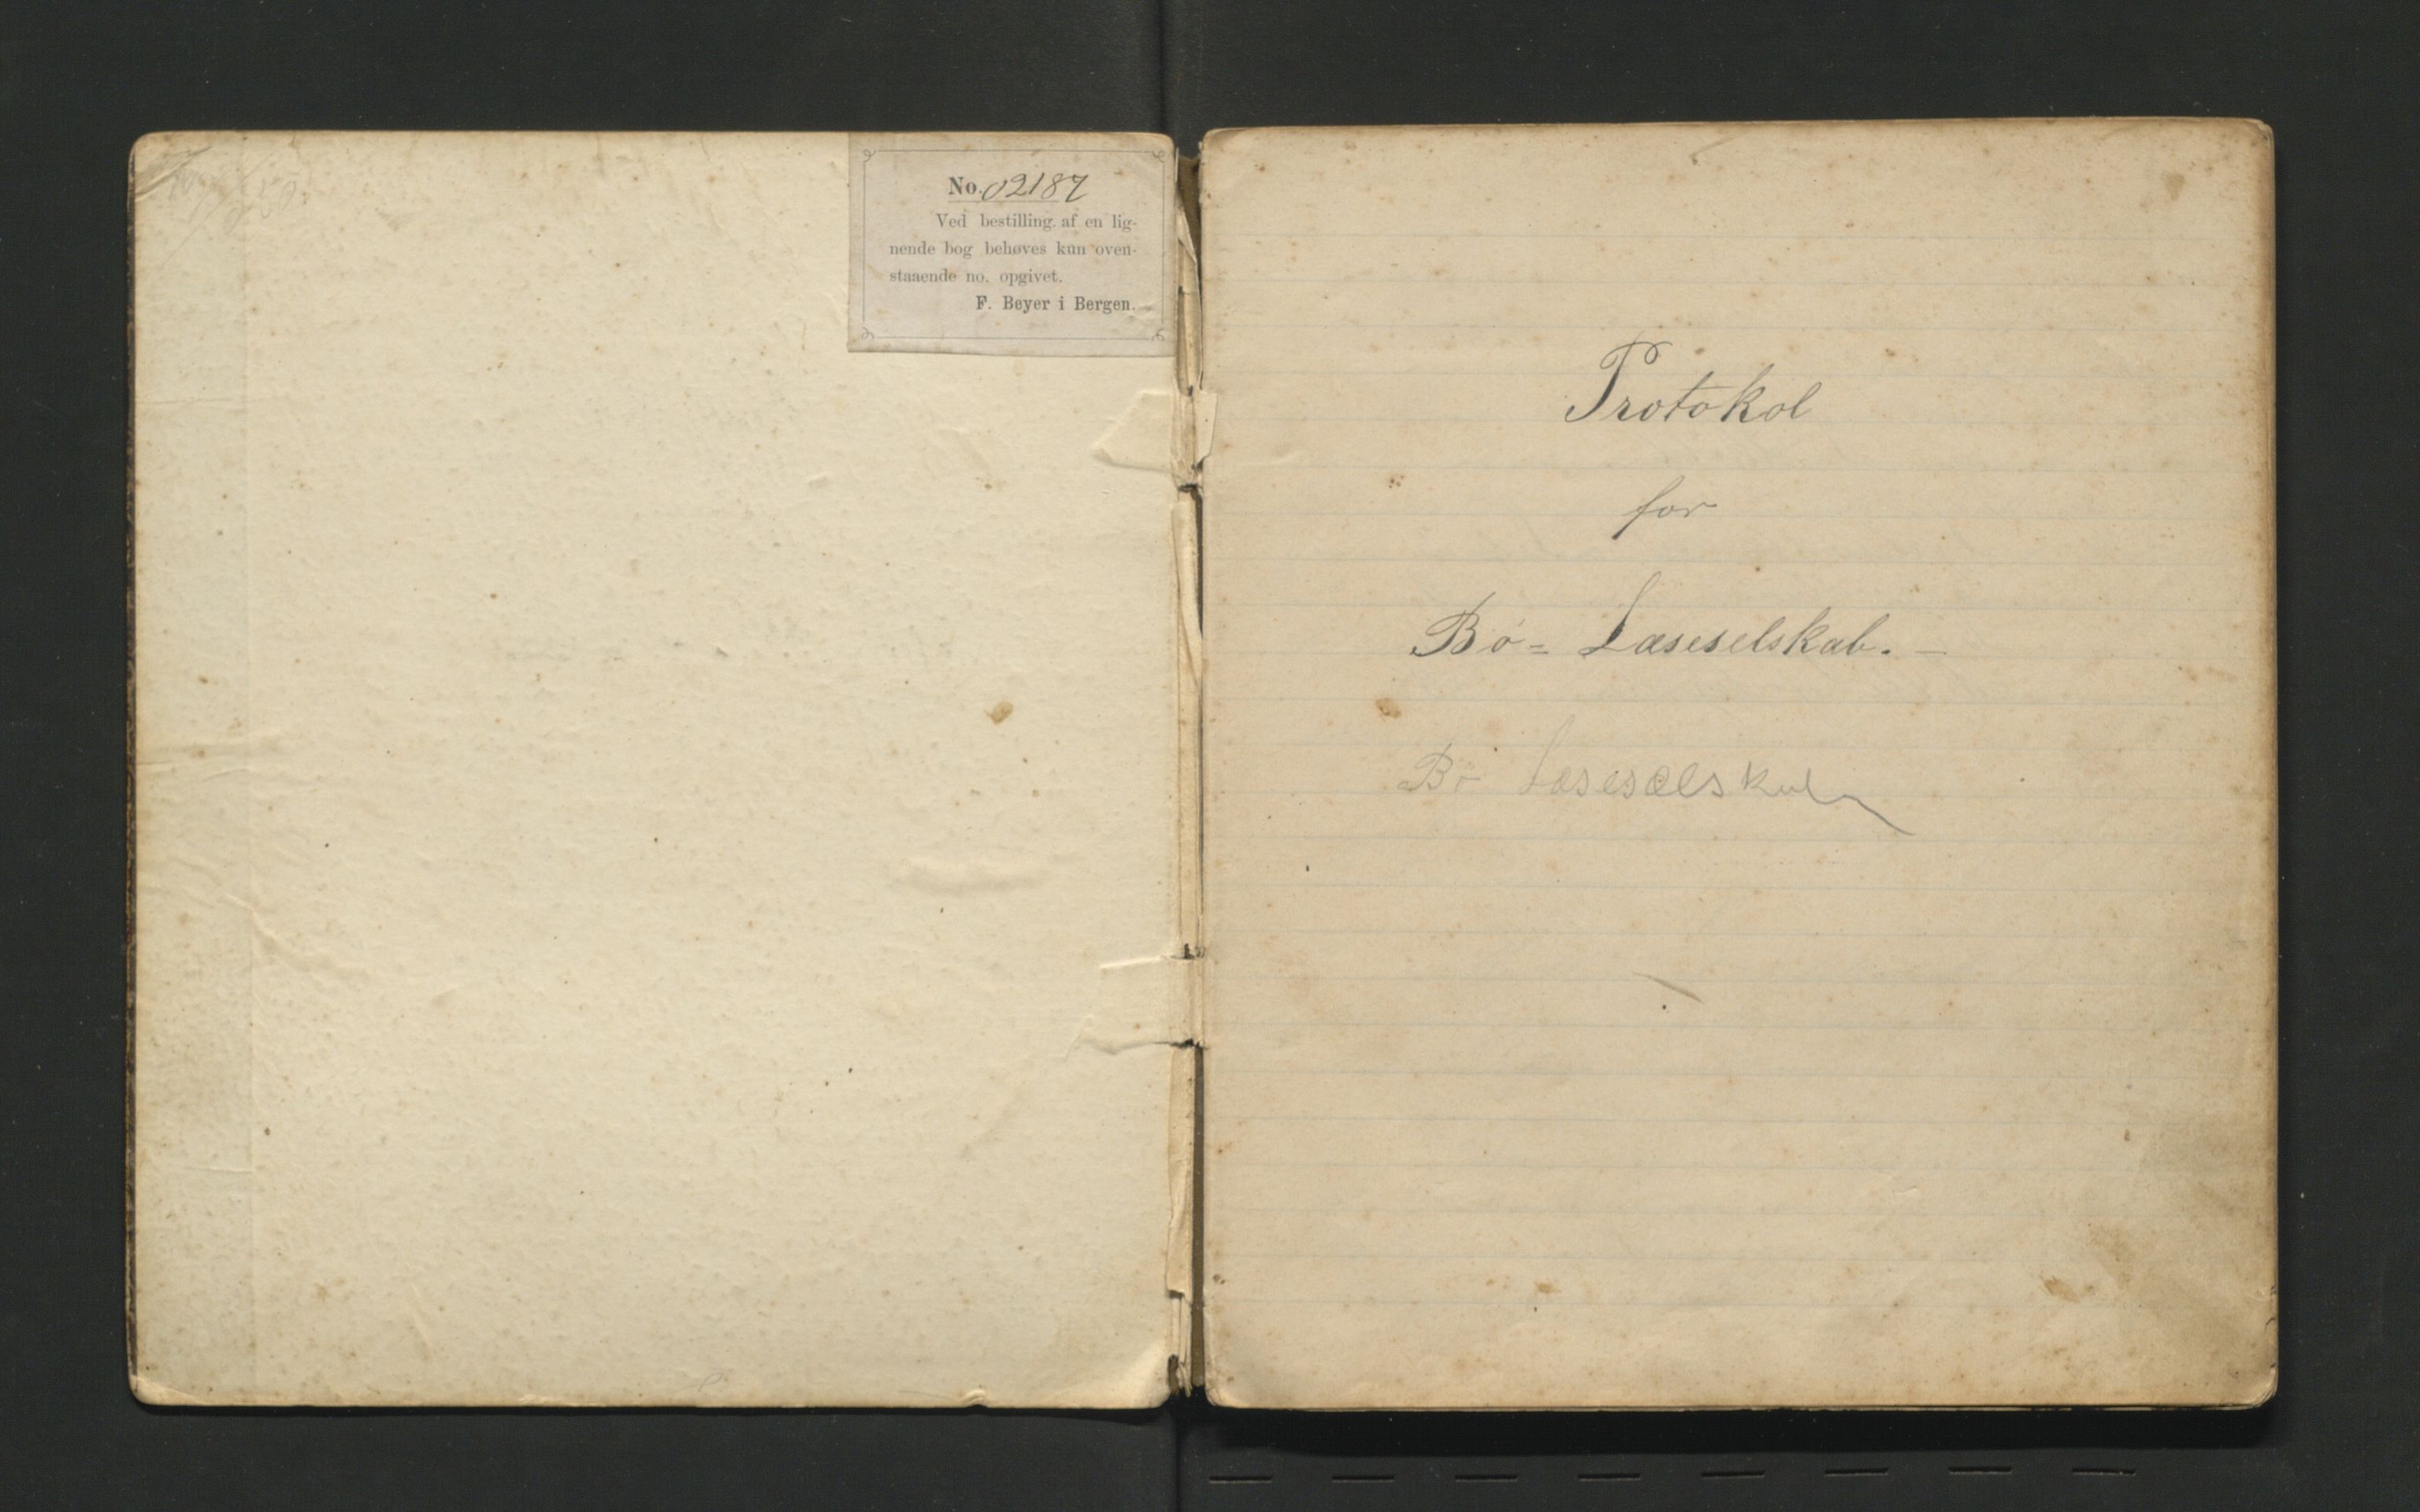 No. 02187
Ved bestilling. af en lig-
nende bog behøves kun oven-
staaende no. opgivet.
F. Beyer i Bergen.
Protokol
for
Bø= Læseselskab. —
Bø Læsesælskab